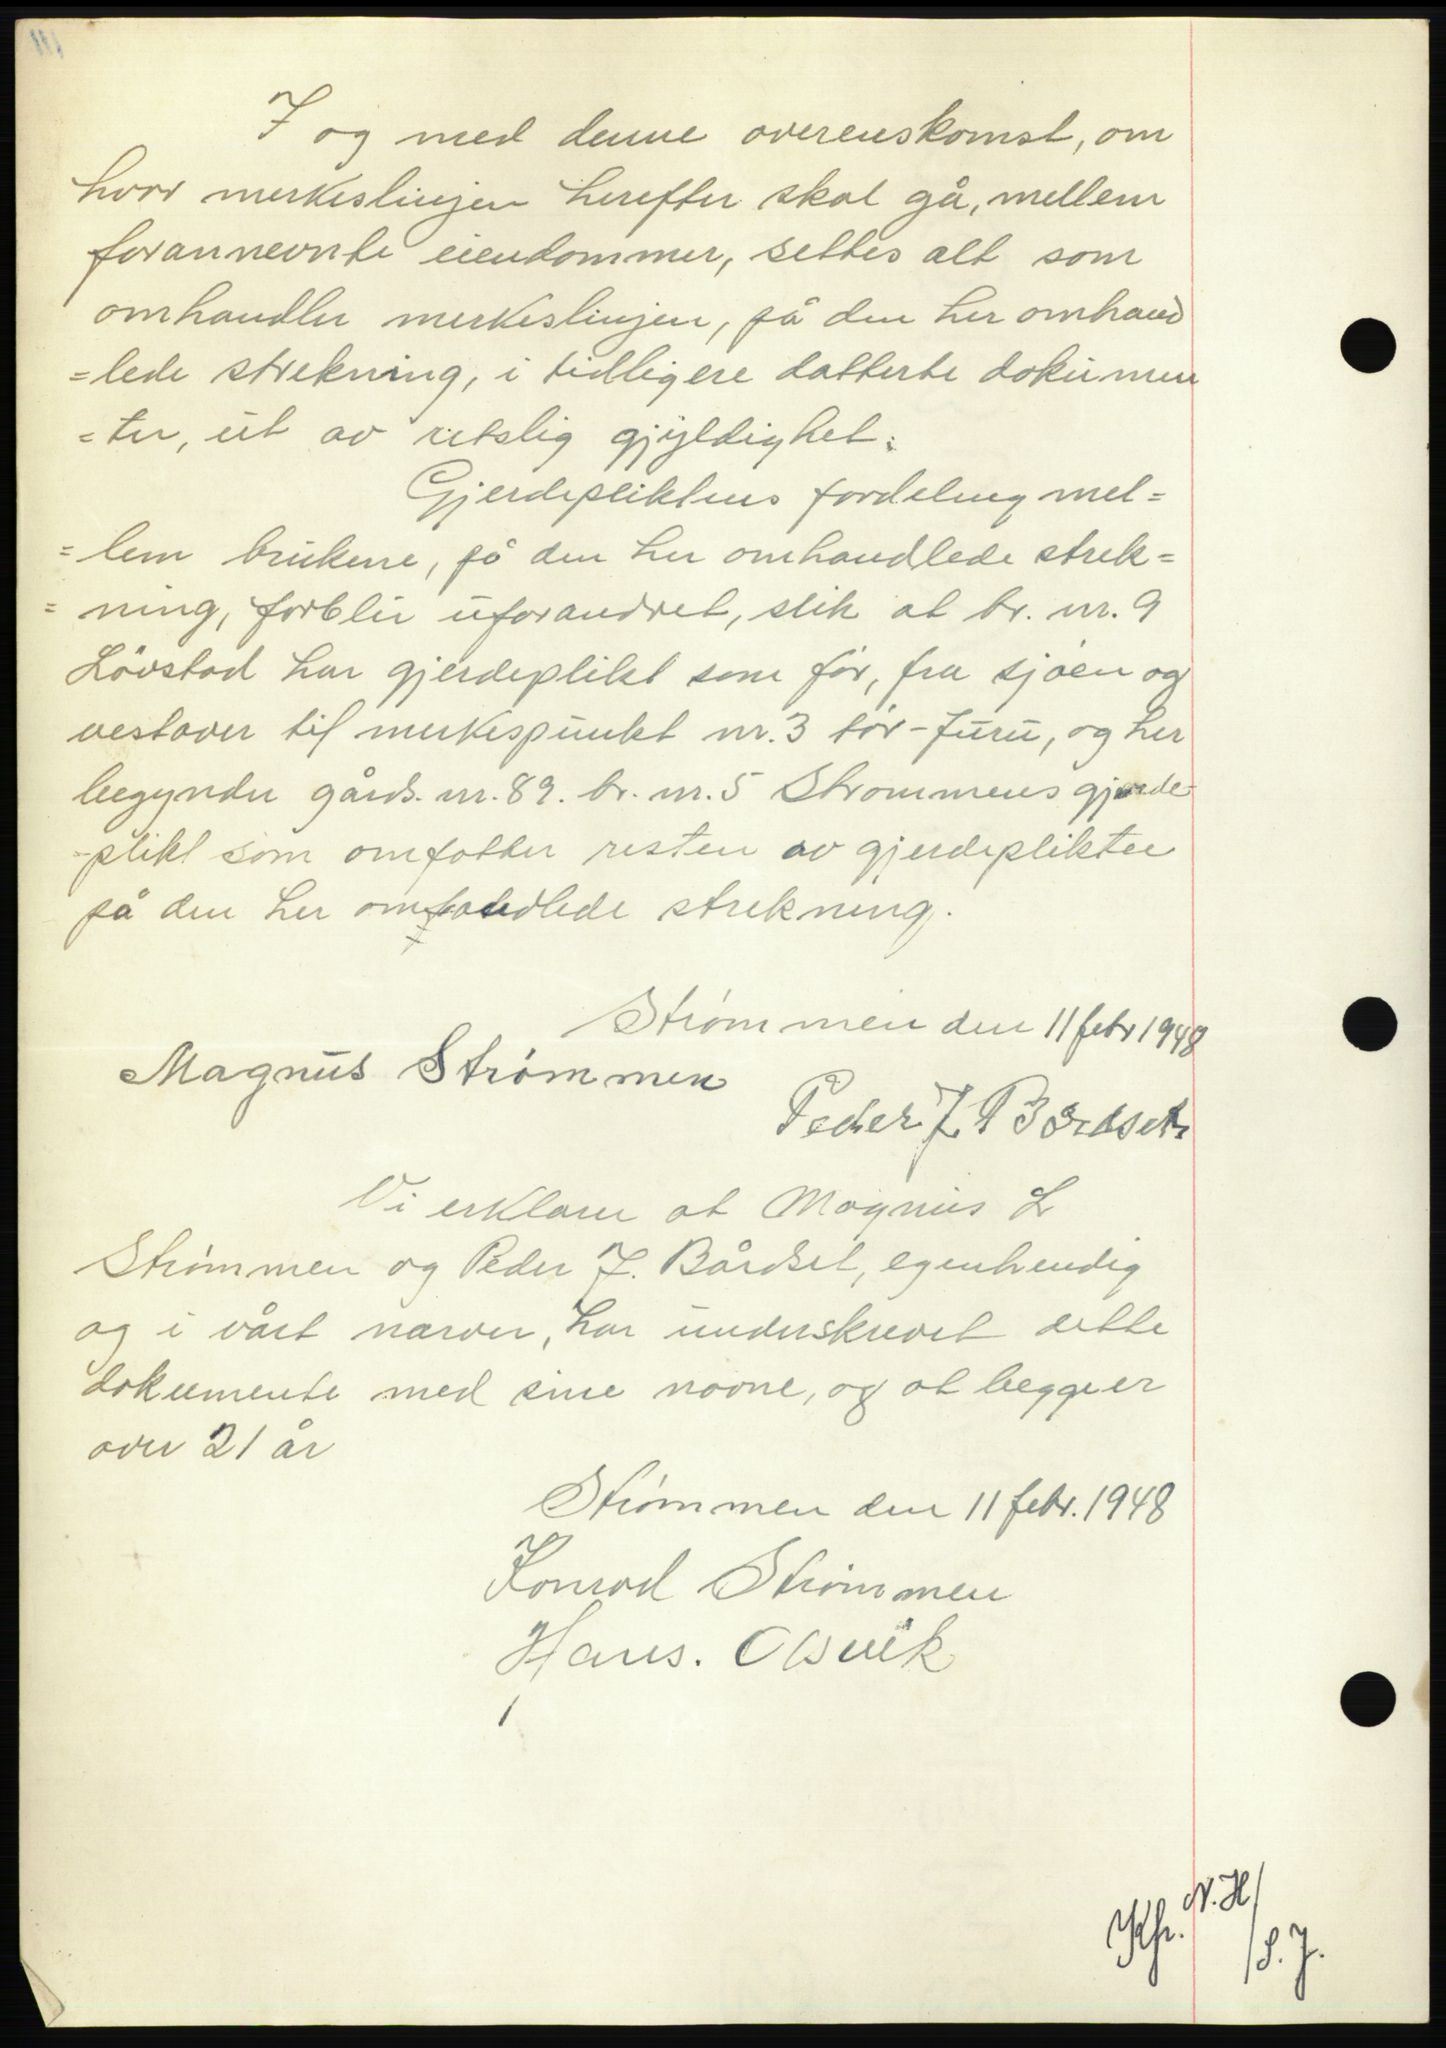 I og med denne overenskomst, om
hvor merkeslinjen herefter skal gå, mellem
forannevnte eiendommer, settes alt som
omhandler merkeslinjen, på den her omhand
=lede strekning, i tidligere datterte dokumen
=ter, ut av retslig gjyldighet.
Gjerdepliktens fordeling mel=
=lem brukene, på den her omhandlede strek=
=ning, forblir uforandret, slik at br. nr. 9
Lövstad har gjerdeplikt som før, fra sjøen og
vestover til merkespunkt nr. 3 tör-furu, og her
begynder gårds. nr. 89. br. nr. 5 Strommens gjerde-
-plikt som omfatter resten av gjerdeplikten
på den her omhandlede strekning.
Strømmen den 11 febr 1948
Magnus Strømmen
Peder J Bårdset
Vi erklarer at Magnus L
Strømmen og Peder J. Bårdset, egenhendig
og i vårt narver, har underskrevet dette
dokumente med sine navne, og at begge er
over 21 år
Strømmen den 11 febr. 1948
Konrad Strömmen
Hans. Olsvik
Kfr. N. H/
/S. J.